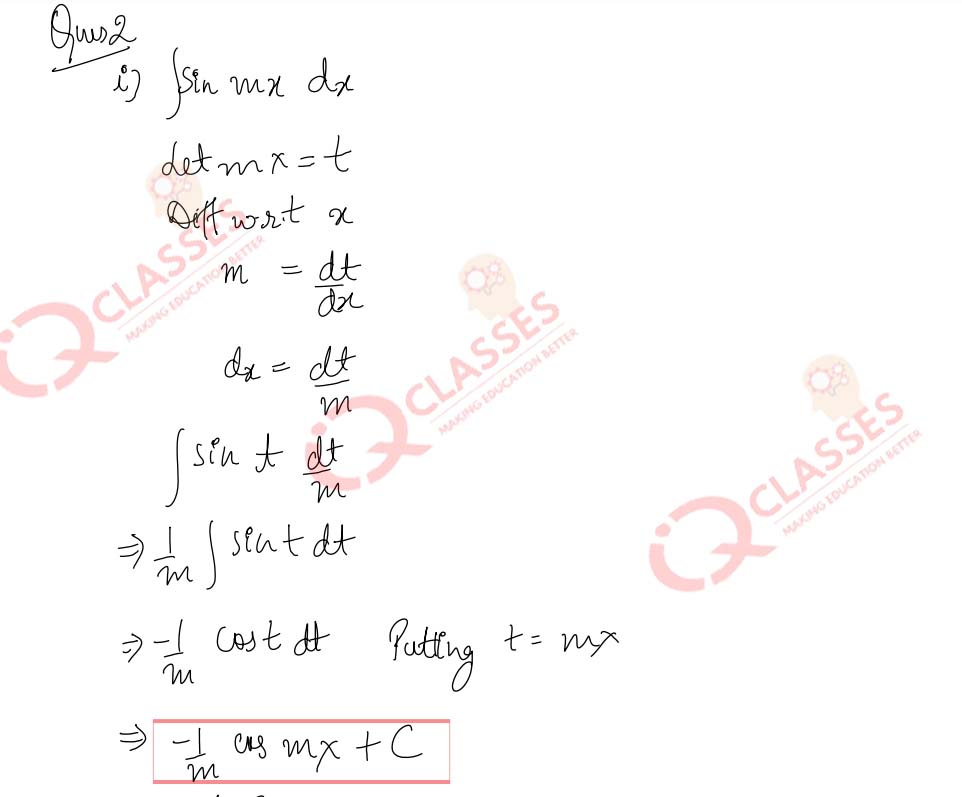 Ques 2
i) ∫sin mx dx
Let mx = t
Diff w.r.t x
m = dt/dx
dx = dt/m
∫ sin t dt/m
⇒ 1/m ∫ sin t dt
⇒ -1/m cos t dt Putting t = mx
⇒ -1/m cos mx + C
iQ CLASSES
MAKING EDUCATION BETTER
iQ CLASSES
MAKING EDUCATION BETTER
iQ CLASSES
MAKING EDUCATION BETTER